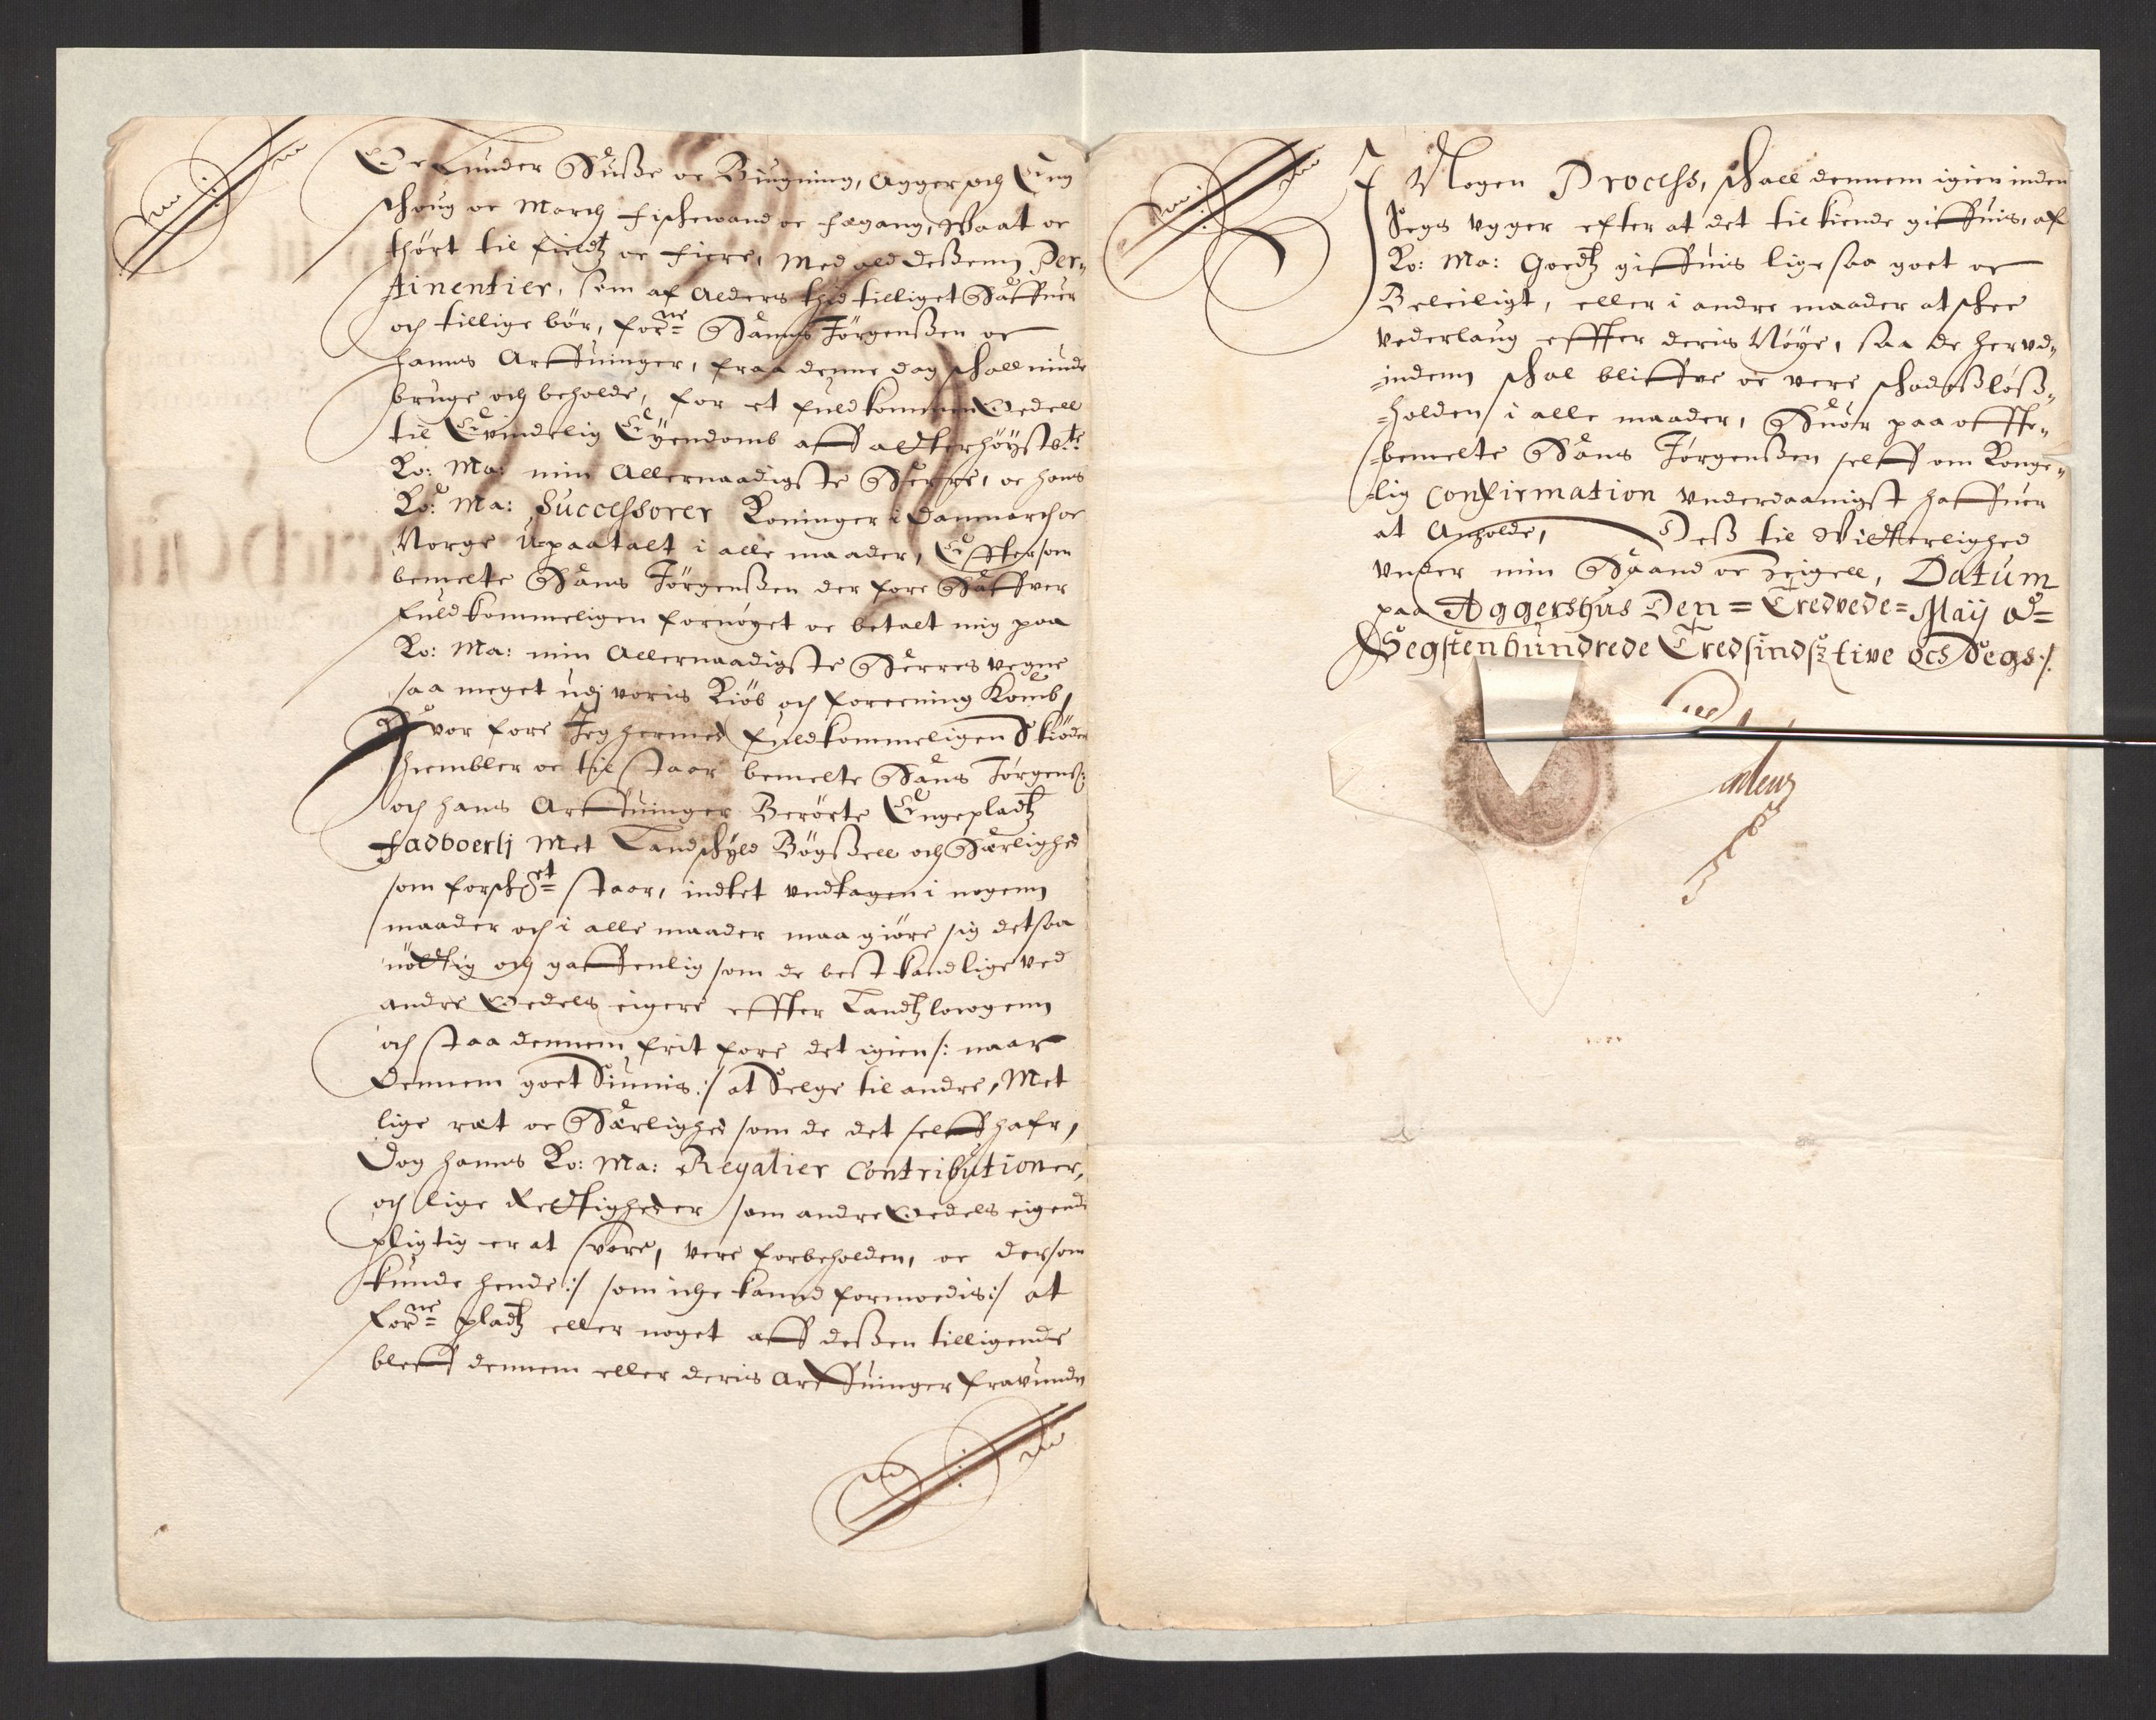 Oc Lunder Huße oc Bÿugning, Agger och Eng
schoug oc March fischewand oc fægang, Waat oc
thört til fieldtz oc fiere, Med ald deßenn Per-
tinentier, som af Alders thid tilliget Haffuer
och tillige bör, forne Hanns Jörgenßen oc
hanns Arffuinger, fraa denne dag schall niude
bruge och beholde, for et fuldkommen Oedell
til Evindelig Eÿendomb aff alderhöÿstbte
Ko: Ma: min Allernaadigste Herre, oc hans
Ko: Ma: Successorer Koninger i Danmarch oc
Norge Upaatalt i alle maader, Effter som
bemelte Hans Jörgenßen der fore Haffver
fuldkommeligen fornöÿet oc betalt mig paa
Ko: Ma: min Allernaadigste Herres vegne
saa meget udj voris Kiöb och foreening Komb,
Hvor fore Jeg hermed fuldkommeligen Skiöder
hiembler oc til staar bemelte Hans Jörgens:
och hans Arffuinger Berörte Engepladtz
Fadboerlj Met Landschÿld Bögßell och Herlighed
som forschet staar, indtet undtagen i nogenn
maader och i alle maader maa giöre sig det saa
nöttig och gaffenlig som de best kand lige ved
andre Oedels eigere effter Landtz lowgenn
och staa dennem frit fore det igien /: naar
Dennem goet Siunis :/ at Selge til andre, Met
lige ræt oc Herlighed som de det selff hafr,
Dog hanns Ko: Ma: Regalier Contributioner,
och lige Rettigheder som andre Oedels eigende
pligtig er at svare, vere forbeholden, oc dersom
kunde hende :/ som iche kannd formoedis :/ at
forne pladtz eller noget aff deßen tilligende
bleff dennem eller deris Arffuinger fravundn
I Nogen Process, schall dennem igien inden
Segs ugger efter at det tilkiende giffuis, af
Ko: Ma: Goedtz giffuis lige saa goet oc
Beleiligt, eller i andre maader at schee
vederlaug effter deris Nöÿe, saa de her ud-
=indenn schal bliffve oc vere schadeßlöß-
=holden i alle maader, Huor paa offte-
=bemelte Hans Jörgenßen selff om Konge-
=lig Confirmation underdaanigst haffuer
at Anholde, Deß til Witterlighed
under min Haand oc Zeigell, Datum
paa Aggershus Den = Tredvede = Maij Ao=
Segstenhundrede Tredsindsz tive ocs Segs :/.